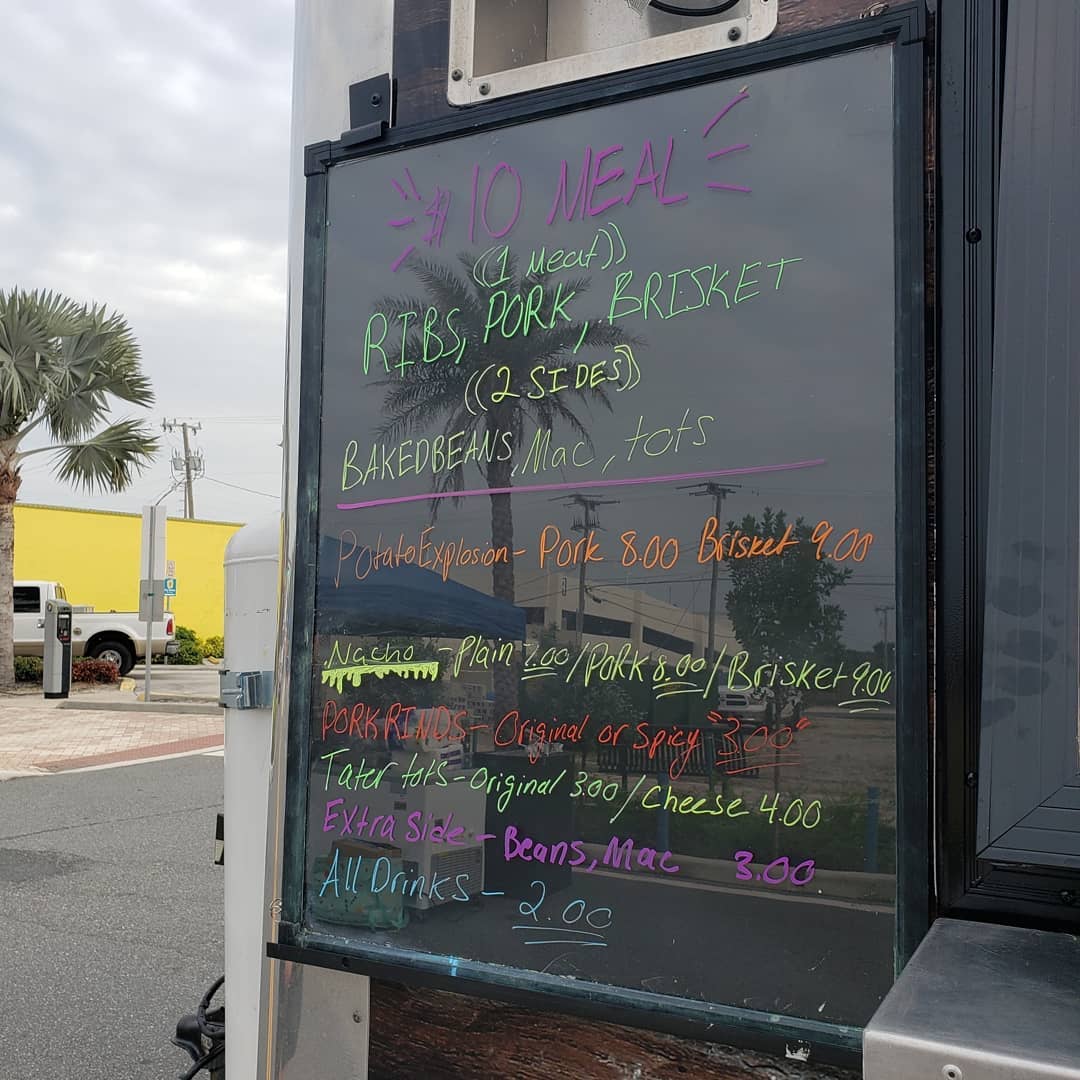 $10 MEAL
((1 Meat))
RIBS, PORK, BRISKET
((2 SIDES))
BAKEDBEANS, Mac, tots
Potato Explosion - Pork 8.00 Brisket 9.00
Nacho - Plain 7.00/Pork 8.00/Brisket 9.00
PORK RINDS - Original or Spicy "3.00"
Tater tots - Original 3.00/Cheese 4.00
Extra Side - Beans, Mac 3.00
All Drinks - 2.00